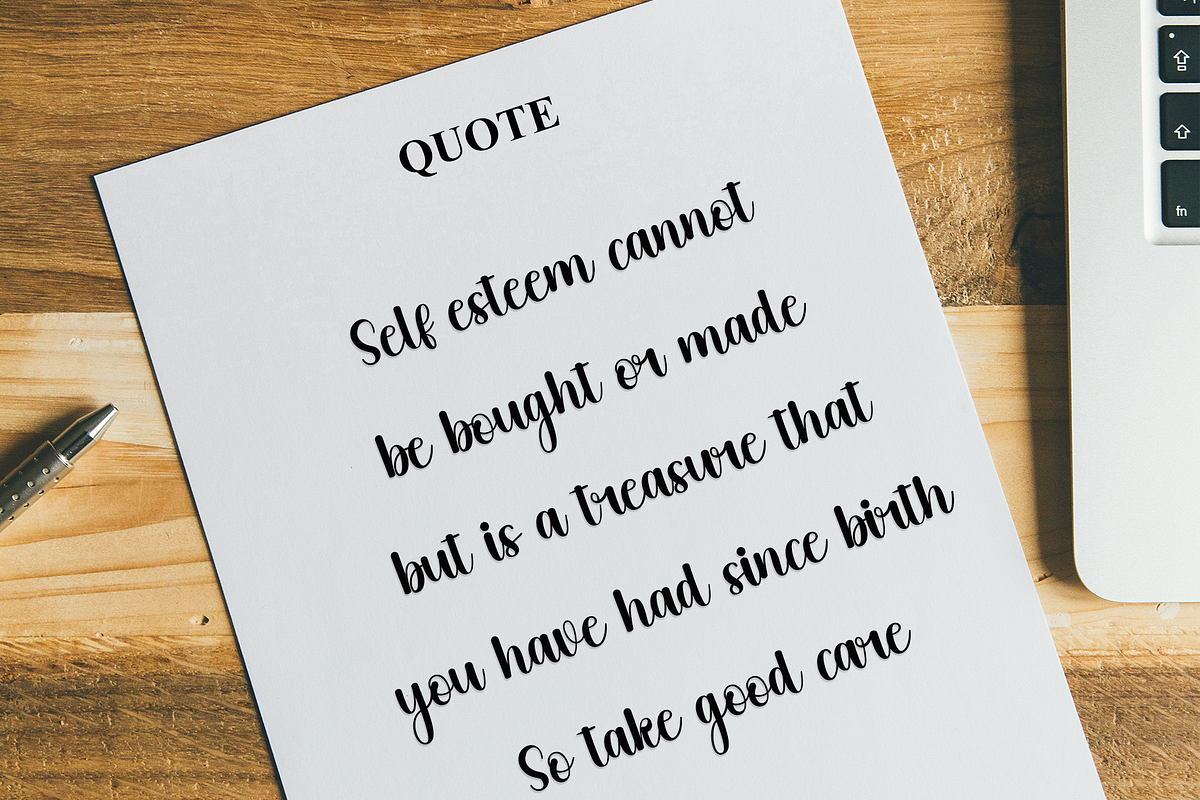 QUOTE
Self esteem cannot
be bought or made
but is a treasure that
you have had since birth
So take good care
fn